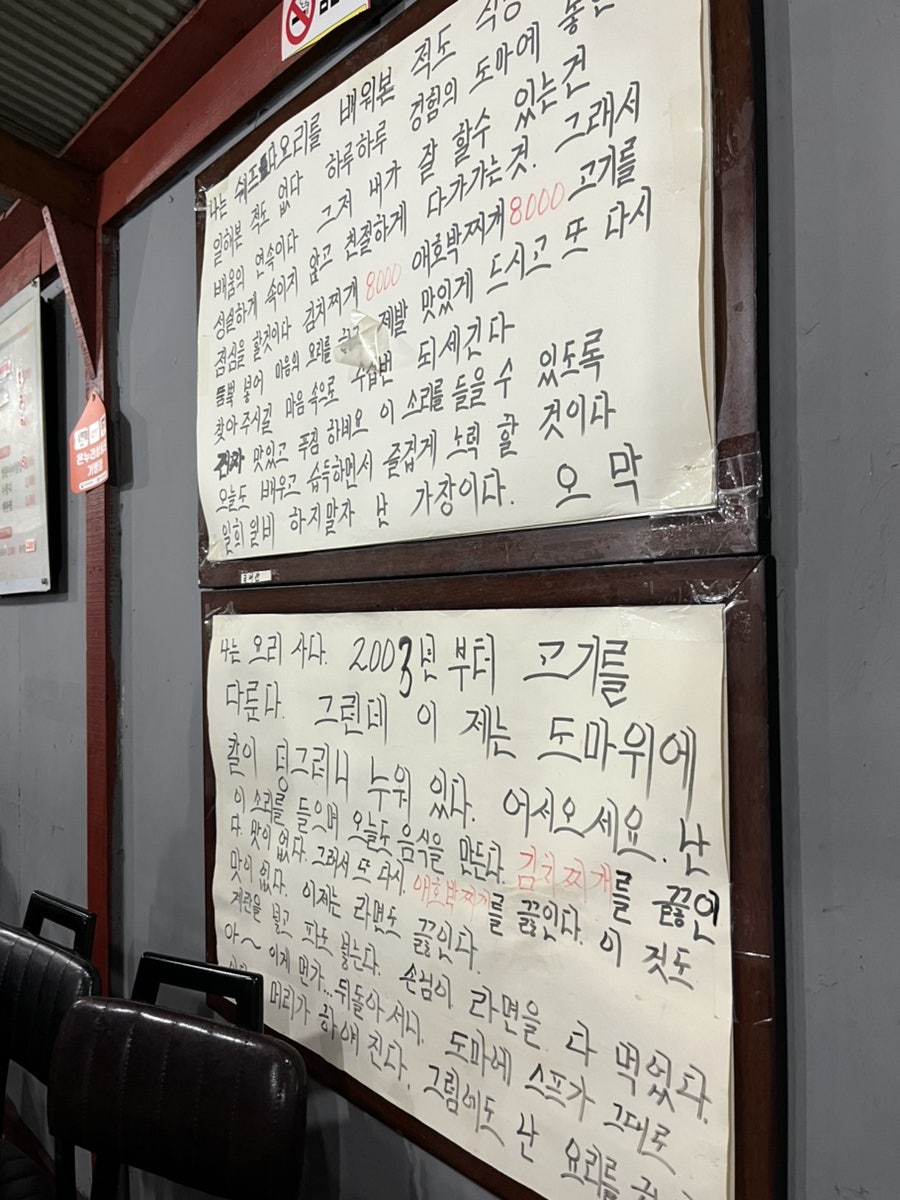 나는 쉐프다 요리를 배워본 적도 식당
일해본 적도 없다 하루하루 경험의 도마에 놓인
배움의 연속이다 그저 내가 잘 할수 있는건
성실하게 속이지 않고 친절하게 다가가는것. 그래서
점심을 할것이다 김치찌개 8000 애호박찌게 8000 고기를
듬뿍 넣어 마음의 요리를 하고 제발 맛있게 드시고 또 다시
찾아 주시길 마음 속으로 수십번 되세긴다
맛있고 푸짐 하네요 이 소리를 들을 수 있도록
오늘도 배우고 습득하면서 즐겁게 노력 할 것이다
일희일비 하지말자 난 가장이다. 오 막
나는 요리 사다. 2003년 부터 고기를
다룬다. 그런데 이 제는 도마위에
칼이 덩그러니 누워 있다. 어서오세요. 난
이 소리를 들으며 오늘도 음식을 만든다. 김치찌개를 끓인
다. 맛이 없다. 그래서 또 다시. 애호박찌개를 끓인다. 이 것도
맛이 없다. 이제는 라면도 끓인다.
계란을 넣고 파도 넣는다. 손님이 라면을 다 먹었다.
아~ 이게 먼가... 뒤돌아 서니. 도마에 스프가 그대로
머리가 하얘 진다. 그럼에도 난 요리를
온누리상품권
가맹점